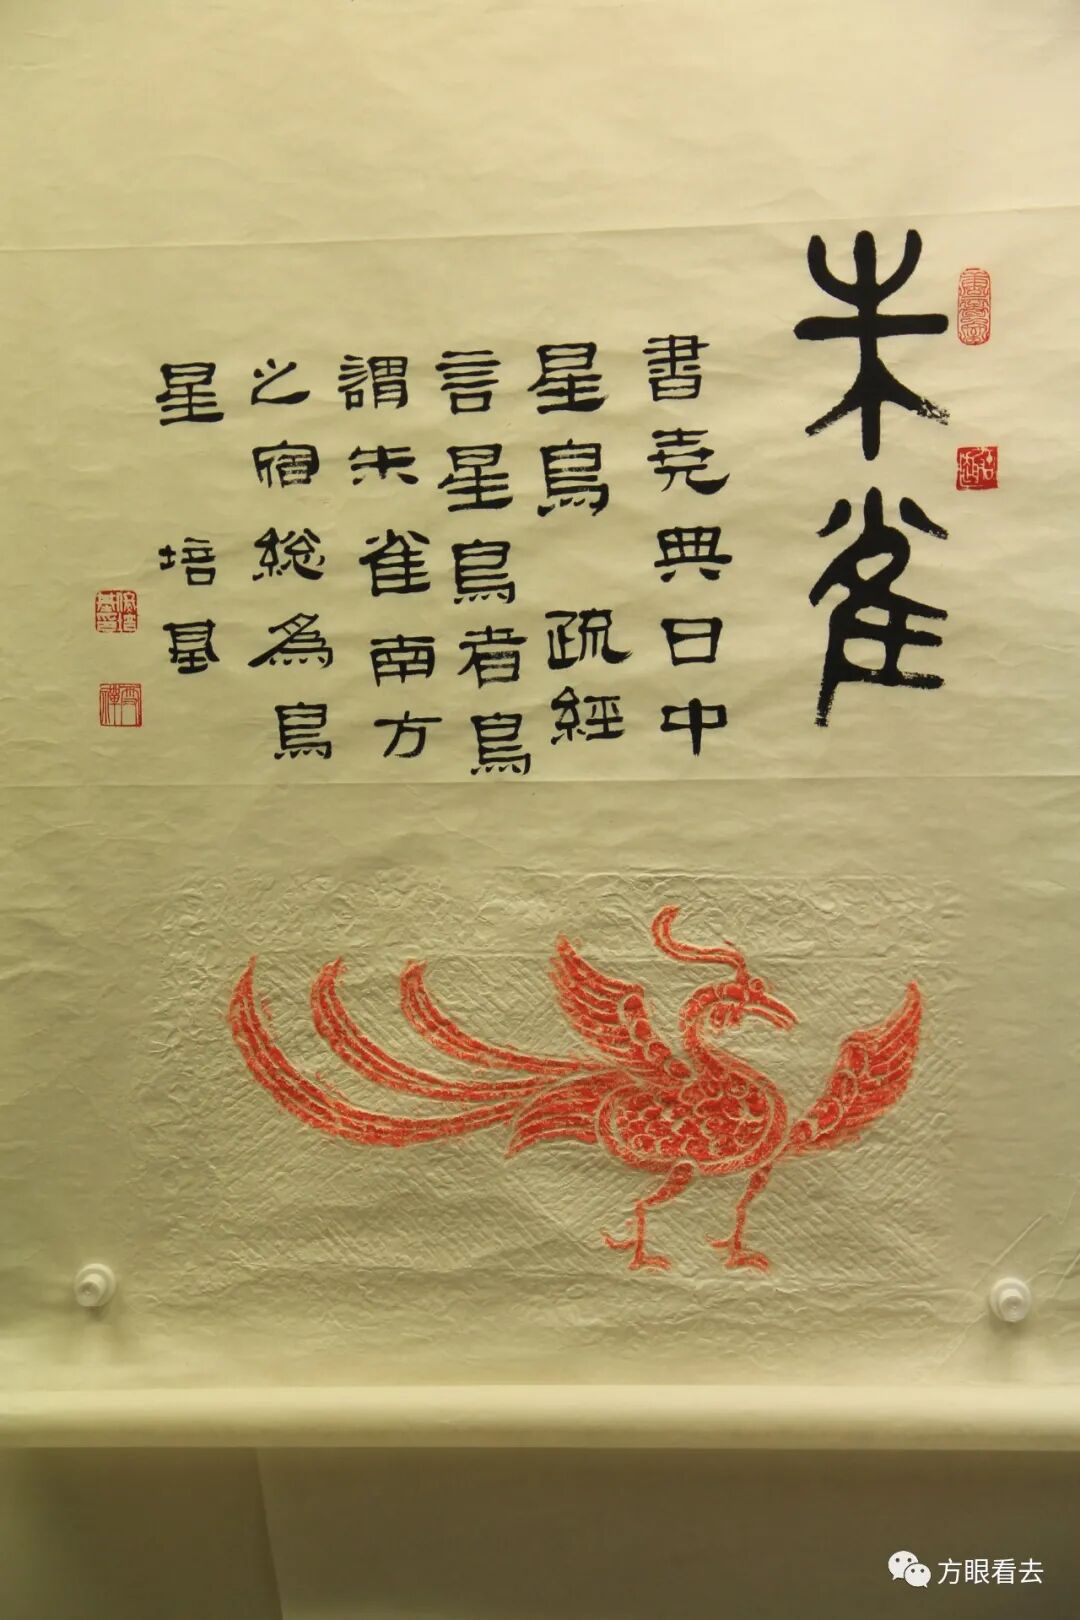 朱雀
書堯典日中
星鳥 疏經
言星鳥者鳥
謂朱雀南方
之宿総為鳥
星 培基
方眼看去